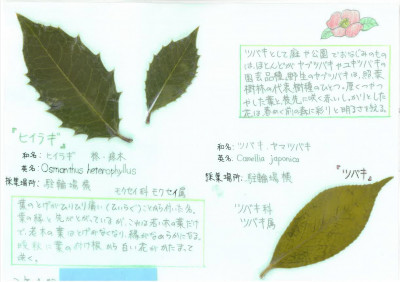 『ヒイラギ』
和名：ヒイラギ 柊・疼木
英名：Osmanthus heterophyllus
採集場所：駐輪場横
モクセイ科モクセイ属
葉のとげがヒリヒリ痛い(ひいらぐ)ことから付いた名。
葉の縁と先がとがっているが、これは若い木の葉だけ
で、老木の葉はとげがなくなり、縁がなめらかになる。
晩秋に葉の付け根から白い花がかたまって
咲く。
ツバキとして庭や公園でおなじみのもの
は、ほとんどがヤブツバキやユキツバキの
園芸品種。野生のヤブツバキは、照葉
樹林の代表樹種のひとつ。厚くつやつ
やした葉と枝先に咲く赤いしっかりとした
花は、春めく前の森に彩りと明るさを放る。
和名：ツバキ、ヤマツバキ
英名：Camellia japonica
採集場所：駐輪場横
『ツバキ』
ツバキ科
ツバキ属